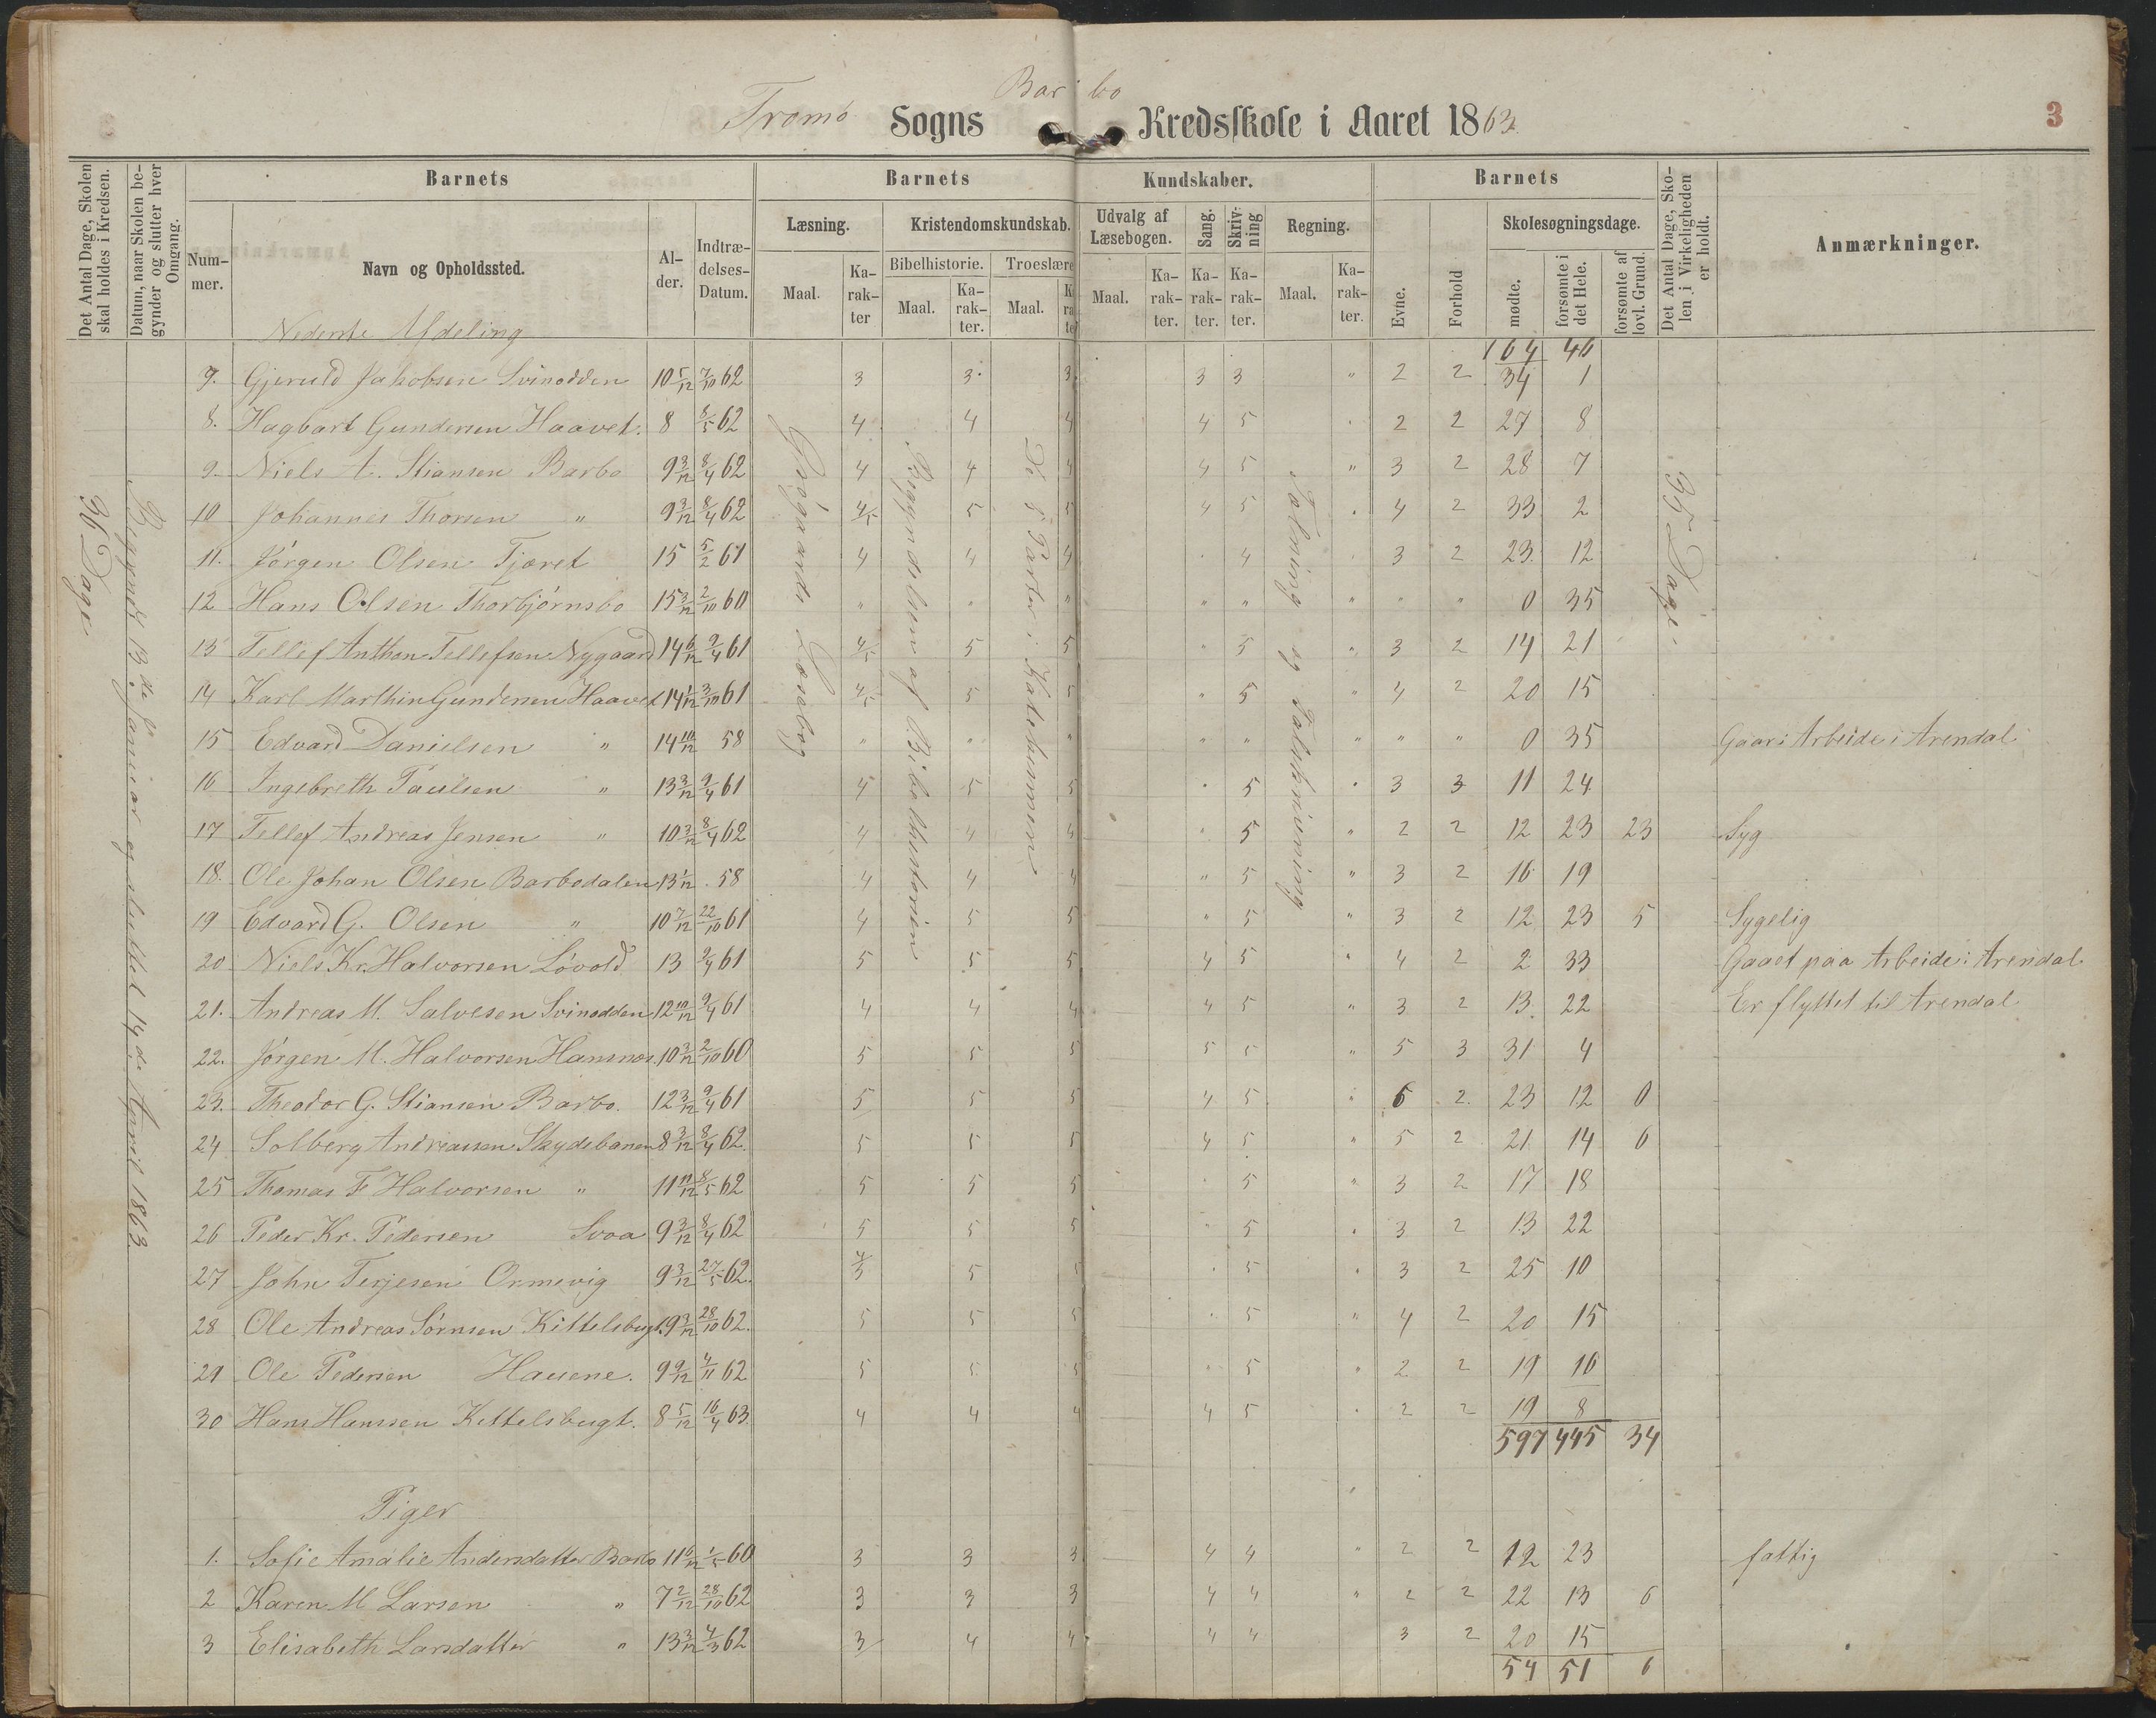 Barbo
Tromø Sogns Kredsskole i Aaret 1863.
3
Det Antal Dage, Skolen skal holdes i Kredsen.
Datum, naar Skolen begynder og slutter hver Omgang.
Barnets
Barnets
Kundskaber.
Barnets
Det Antal Dage, Skolen i Virkeligheden er holdt.
Anmærkninger.
Nummer.
Navn og Opholdssted.
Alder.
Indtrædelses-Datum.
Læsning.
Kristendomskundskab.
Udvalg af Læsebogen.
Sang.
Skrivning
Regning.
Evne.
Forhold
Skolesøgningsdage.
Bibelhistorie.
Troeslære
Maal.
Karakter
Maal.
Karakter.
Maal.
Karakter
Maal.
Karakter.
Karakter.
Karakter.
Maal.
Karakter.
mødte.
forsømte i det Hele.
forsømte af lovl. Grund.
36 Dage
Begyndt 13de Januar og sluttet 14de April 1863.
Grøgaards Læsebog
Begyndelsen af Bibelhistorien
De 5 Parter i Katekismen
Tælning og Talskrivning
35 Dage.
Nederste Afdeling
164 46
7. Gjeruld Jakobsen Svinodden 10 5/12 7/10 62 3 3 3 3 3 " 2 2 34 1
8. Hagbart Gundersen Haavet. 8 8/5 62 4 4 4 4 5 2 2 27 8
9. Niels A. Stiansen Barbo 9 3/12 8/4 62 4 4 4 4 5 " 3 2 28 7
10 Johannes Thorsen " 9 3/12 8/4 62 4/5 5 5 4 5 4 2 33 2
11. Jørgen Olsen Tjæret 15 5/2 61 4 4 4 4 3 2 23 12
12 Hans Olsen Thorbjørnsbo 15 3/12 2/10 60 " " " " " " " " 0 35
13 Tellef Anthon Tellefsen Nygaard 14 6/12 9/4 61 4/5 5 5 " 5 " 3 2 14 21
14 Karl Marthin Gundersen Haavet 14 1/12 3/10 61 4/5 5 5 " 5 " 4 2 20 15
15 Edvard Danielsen " 14 10/12 58 " " " " " " " " 0 35 Gaar i Arbeide i Arendal
16 Ingebreth Paulsen " 13 3/12 9/4 61 4 5 5 " 5 3 3 11 24
17 Tellef Andreas Jensen " 10 3/12 8/4 62 4 4 4 " 5 " 2 2 12 23 23 Syg
18. Ole Johan Olsen Barbodalen 13 1/12 58 4 4 4 " 5 " 3 2 16 19
19 Edvard G. Olsen " 10 7/12 22/10 61 4 5 5 " 5 " 3 2 12 23 5 Sygelig
20 Niels Kr. Halvorsen Løvold 13 9/4 61 5 5 5 4 5 " 4 2 2 33 Gaaet paa Arbeide i Arendal
21. Andreas M. Salvesen Svinodden 12 10/12 9/4 61 4 4 4 4 5 " 3 2 13 22 Er flyttet til Arendal
22. Jørgen M. Halvorsen Hansnæs. 10 3/12 2/10 60 5 5 5 5 5 " 5 3 31 4
23. Theodor G. Stiansen Barbo. 12 3/12 9/4 61 5 5 5 4 5 " 6 2 23 12 0
24 Solberg Andreassen Skydebanen 8 3/12 8/4 62. 5 5 5 4 5 " 5 2 21 14 6
25 Thomas F Halvorsen " 11 11/12 8/5 62 5 5 5 5 " 3 2 17 18
26 Peder Kr. Pedersen Svoa 9 3/12 8/4 62 5 5 5 " 5 3 2 13 22
27 John Terjesen Ormevig 9 3/12 27/5 62. 4/5 5 5 5 3 2 25 10
28 Ole Andreas Sørnsen Kittelsbugt. 9 3/12 28/10 62. 5 5 5 5 " 4 2 20 15
29 Ole Pedersen Hauene. 9 9/12 4/11 62 5 5 5 5 " 2 2 19 16
30 Hans Hanssen Kittelsbugt. 8 5/12 16/4 63. 4 4 4 4 5 2 2 19 8
597 445 34
Piger
1. Sofie Amalie Andersdatter Barbo 11 6/12 1/5 60 3 3 3 4 4 " 2 2 12 23 fattig
2 Karen M Larsen " 7 2/12 28/10 62 3 3 3 4 4 " 2 2 22 13 6
3 Elisabeth Larsdatter " 13 3/12 4/3 62 3 4 4 4 4 3 2 20 15
54 51 6